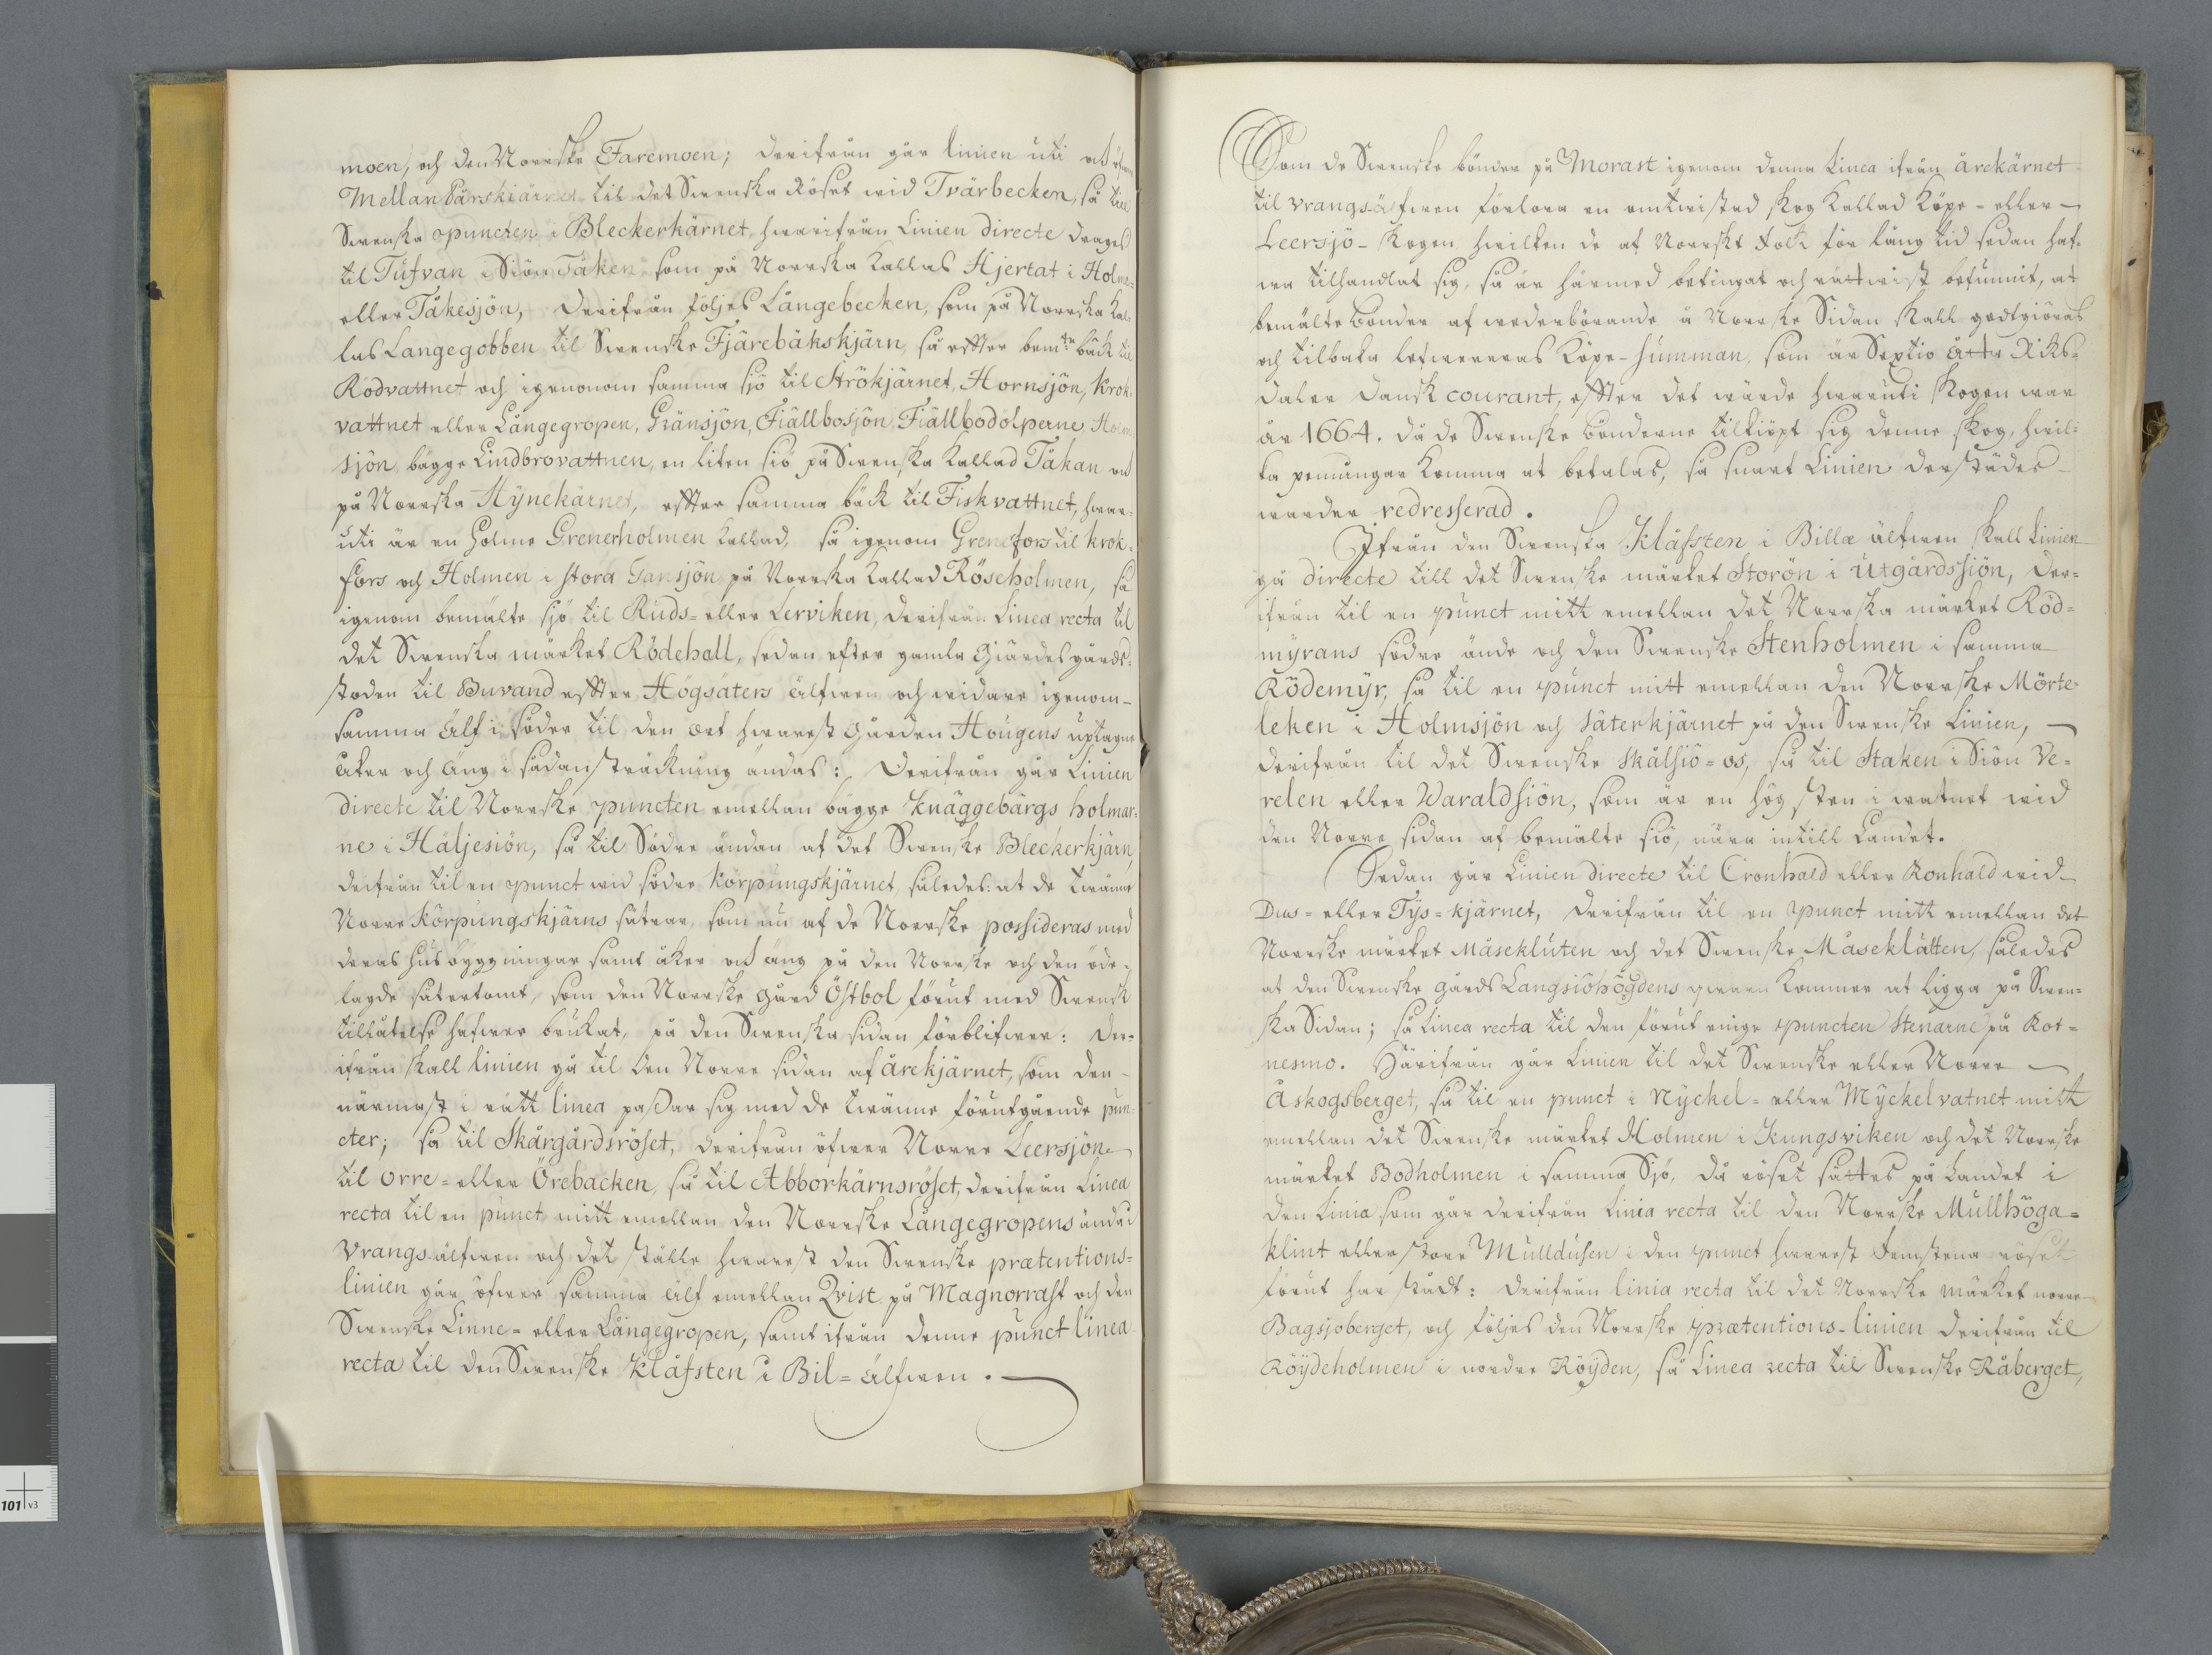 moen, och den Norrske Faremoen; derifrån går linien uti och öfwer
Mellan Pärskiärnet til det Swenska Röset wid Tvärbecken, så till
Swenska puncten i Bleckerkärnet, hwarifrån Linien directe drages
til Tufvan i Siön Tåken som på Norrska kallas Hjertat i Holme=
eller Tåkesjön, derifrån följes Långebecken, som på Norrska kal=
las Langegobben til Swenske Fjärebäkskjärn, så effter bem:te bäck til
Rödvattnet och igenonom samma sjö til Strökjärnet, Hornsjön, Krok=
vattnet eller Långegropen, Gränsjön, Fiällbosjön, Fiällbodolperne, Holm
sjön, bägge Lindbrovattnen, en liten siö på Swenska kallad Tåkan och
på Norrska Hÿnekärnet, effter samma bäck til Fiskvattnet, hwar=
uti är en Holme Grenerholmen kallad, så igenom Grenefors til Krok=
fors och Holmen i stora Gansjön på Norrska kallad Röseholmen, så
igenom bemälte sjö til Ruds= eller Lerviken, derifrån Linea recta til
det Swenska märket Rödehall, sedan efter gamla Giärdesgårds=
staden til Buvand effter Högsäters älfwen och widare igenom
samma Älf i söder til den ort hwarest gården Hougens uptagne
åker och äng i sådan sträckning ändas: Derifrån går Linien
directe til Norrske puncten emellan bägge Knäggebärgs holmar=
ne i Häljesiön, så til Södre ändan af det Swenske Bleckerkjärn,
derifrån til en punct wid södre Korpungskjärnet, således: at de twänne
Norre Körpungskjärns sätrar, som nu af de Norrske possideras med
deras husbyggningar samt åker och äng på den Norrske och den öde=
lagde sätertomt, som den Norrske gård Östbol förut med Swensk
tillåtelse hafwer brukat, på den Swenska sidan förblifwer: Der=
ifrån skall linien gå til den Norre sidan af Årekjärnet, som den
närmast i rätt linea passar sig med de twänne förutgående pun=
cter; så til Skårgårdsröset, derifrån öfwer Norre Leersjön
til Orre= eller Örebacken, så til Abborkärnsröset, derifrån Linea
recta til en punct mitt emellan den Norrske Långegropens ända i
Vrangs-älfwen och det ställe hwarest den Swenske prætentions=
linien går öfwer samma älf emellan Qvist på Magnorrast och den
Swenske Linne= eller Långegropen, samt ifrån denne punct linea
recta til den Swenske Klåfsten i Bil= älfwen.
Som de Swenske bönder på Morast igenom denna Linea ifrån Årekärnet
til Vrangs-älfwen förlora en omtwistad skog kallad Köpe- eller
Leersjö-skogen hwilken de af Norrskt folk för lång tid sedan haf=
wa tilhandlat sig, så är härmed betingat och rättwist befunnit, at
bemälte Bönder af wederbörande å Norrske Sidan skall godtgiöras
och tilbaka lefwereras Köpe-Summan, som är Sextio åtta Riks=
daler Dansk courant, effter det wärde hwaruti skogen war
år 1664. då de Swenske bönderne tilköpt sig denne skog, hwil=
ka penningar komma at betalas, så snart Linien derstädes
warder redresserad.
Ifrån den Swenska Klåfsten i Billa älfwen skall Linien
gå directe till det Swenske märket Storön i Utgårdssiön, der=
ifrån til en punct mitt emellan det Norrska märket Röd=
mÿrans södre ände och den Swenske Stenholmen i samma
Rödemÿr, så til en punct mitt emellan den Norrske Mörte=
leken i Holmsjön och Säterkjärnet på den Swenske Linien,
derifrån til det Swenske Skålsiö=os, så til Staken i Siön Ve=
relen eller Waraldsiön, som är en hög sten i watnet wid
den Norre sidan af bemälte siö, nära intill Landet.
Sedan går Linien directe til Cronhald eller Ronhald wid
Dus= eller Tÿs=kjärnet, derifrån til en punct mitt emellan det
Norrske märket Måsekluten och det Swenske Måseklåtten, således
at den Swenske gårds Langsiöhögdens qwarn kommer at ligga på Swen=
ska Sidan; så Linea recta til den förut enige puncten Stenarne på Rot=
nesmo. Härifrån går Linien til det Swenske eller Norre
Åskogsberget, så til en punct i Nÿckel= eller Mÿckelvatnet mitt
emellan det Swenske märket Holmen i Kungsviken och det Norrske
märket Bodholmen i samma Sjö, då röset sättes på Landet i
den Linia som går derifrån Linia recta til den Norrske Mullhöga=
klint eller store Mulldusen i den punct hwarest femstena röset
förut har stådt: Derifrån linia recta til det Norrske märket norre
Bagsjoberget, och följes den Norrske prætentions-linien derifrån til
Röÿdeholmen i nordre Röÿden, så Linea recta til Swenske Råberget,